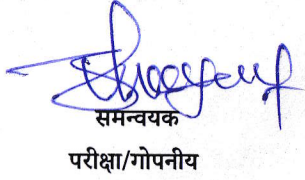 समन्वयक
परीक्षा/गोपनीय